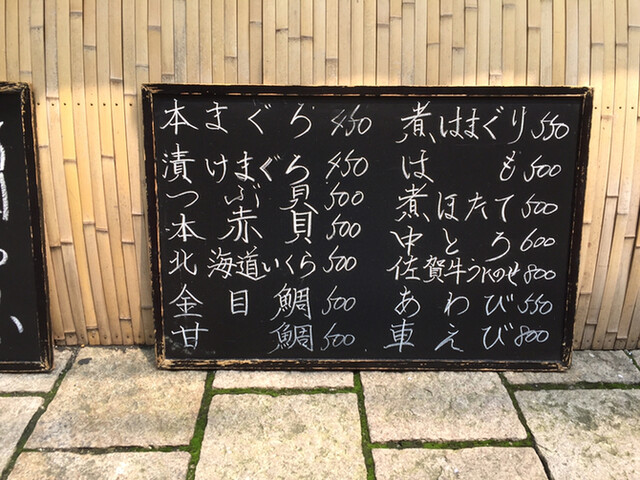 本まぐろ 450
漬けまぐろ 450
つぶ貝 500
本赤貝 500
北海道いくら 500
金目鯛 500
甘鯛 500
煮はまぐり 550
はも 500
煮ほたて 500
中とろ 600
佐賀牛うにのせ 800
あわび 550
車えび 800